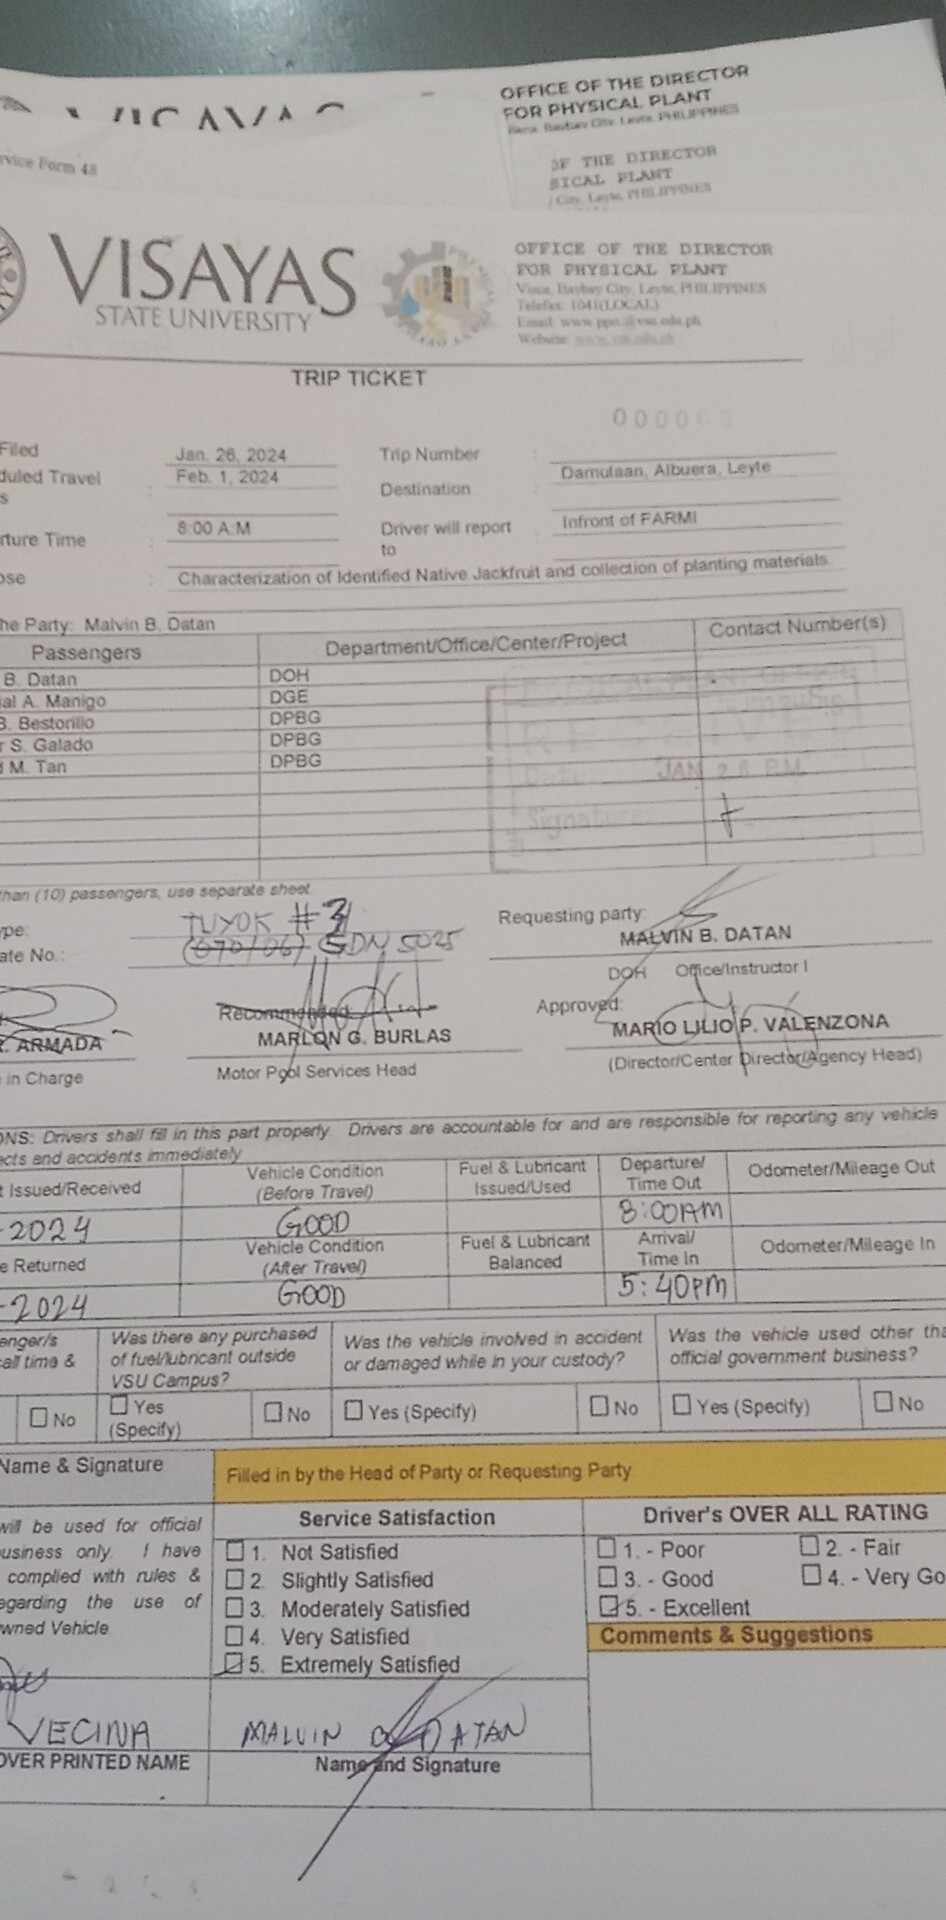 OFFICE OF THE DIRECTOR
FOR PHYSICAL PLANT
Visca, Baybay City, Leyte, PHILIPPINES
VISAYAS
rvice Form 48
OF THE DIRECTOR
SICAL PLANT
City, Leyte, PHILIPPINES
VISAYAS
STATE UNIVERSITY
OFFICE OF THE DIRECTOR
FOR PHYSICAL PLANT
Visca, Baybay City, Leyte, PHILIPPINES
Telefax: 1041(LOCAL)
Email: www.ppo@vsu.edu.ph
Website:
TRIP TICKET
Filed Jan. 26, 2024 Trip Number 0000
duled Travel : Feb. 1, 2024 Destination : Damulaan, Albuera, Leyte
s
rture Time : 8:00 A.M Driver will report to : Infront of FARMI
ose : Characterization of Identified Native Jackfruit and collection of planting materials.
he Party: Malvin B. Datan
Passengers Department/Office/Center/Project Contact Number(s)
B. Datan DOH
al A. Manigo DGE
B. Bestorillo DPBG
r S. Galado DPBG
M. Tan DPBG
RECEIVED
Date: JAN 26 P.M
Signature:
than (10) passengers, use separate sheet
ype: TUYOK #3
ate No.: (070106) SDN 5025
Requesting party:
MALVIN B. DATAN
DOH Office/Instructor I
. ARMADA
in Charge
Recommended:
MARLON G. BURLAS
Motor Pool Services Head
Approved:
MARIO LILIO P. VALENZONA
(Director/Center Director/Agency Head)
ONS: Drivers shall fill in this part properly. Drivers are accountable for and are responsible for reporting any vehicle
ects and accidents immediately
t Issued/Received Vehicle Condition (Before Travel) Fuel & Lubricant Issued/Used Departure/ Time Out Odometer/Mileage Out
-2024 GOOD 8:00AM
e Returned Vehicle Condition (After Travel) Fuel & Lubricant Balanced Arrival/ Time In Odometer/Mileage In
-2024 GOOD 5:40PM
enger/s
all time &
Was there any purchased of fuel/lubricant outside VSU Campus?
Was the vehicle involved in accident or damaged while in your custody?
Was the vehicle used other tha
official government business?
No Yes (Specify) No Yes (Specify) No Yes (Specify) No
Name & Signature
Filled in by the Head of Party or Requesting Party
will be used for official
usiness only. I have
complied with rules &
egarding the use of
wned Vehicle
Service Satisfaction
1. Not Satisfied
2. Slightly Satisfied
3. Moderately Satisfied
4. Very Satisfied
5. Extremely Satisfied
Driver's OVER ALL RATING
1. - Poor 2. - Fair
3. - Good 4. - Very Go
5. - Excellent
Comments & Suggestions
VECINA
OVER PRINTED NAME
MALVIN DATAN
Name and Signature